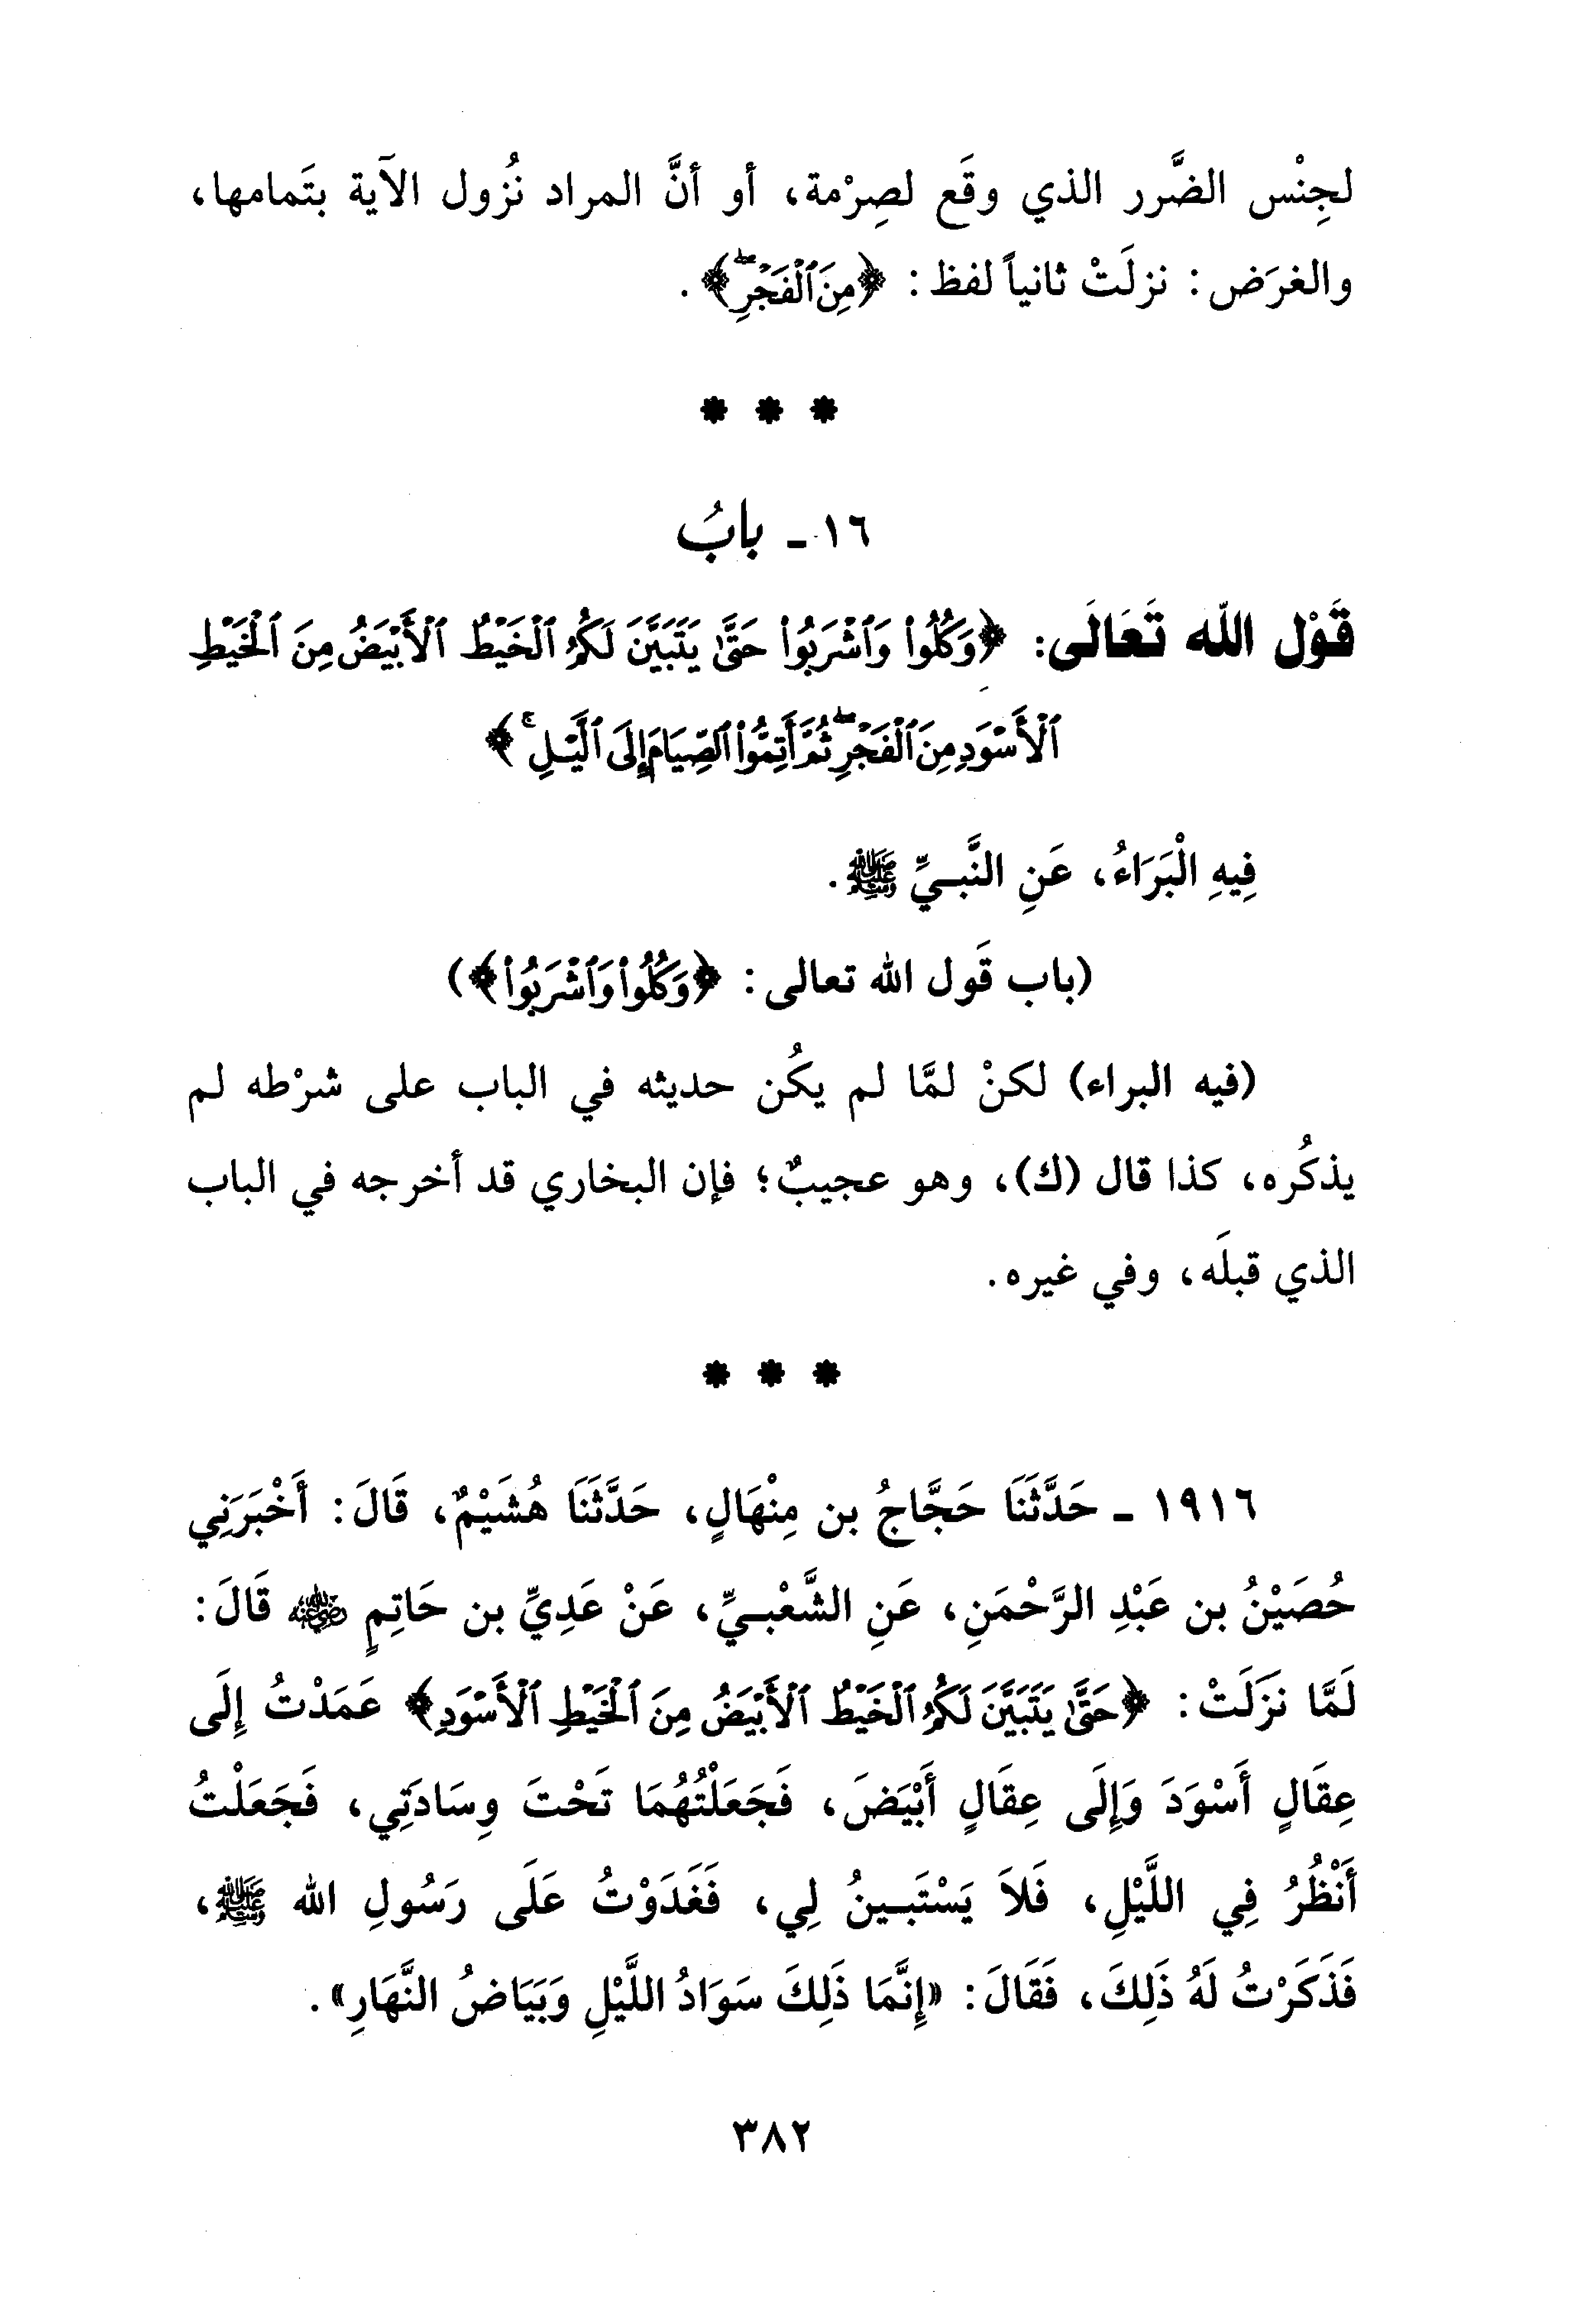 لجِنْس الضَّرر الذي وقَع لصِرْمة، أو أنَّ المراد نُزول الآية بتَمامها،
والغرَض: نزلَتْ ثانياً لفظ: ﴿مِنَ ٱلْفَجْرِۖ﴾.
* * *
١٦ - بابُ
قَوْل الله تَعَالَى: ﴿وَكُلُوا۟ وَٱشْرَبُوا۟ حَتَّىٰ يَتَبَيَّنَ لَكُمُ ٱلْخَيْطُ ٱلْأَبْيَضُ مِنَ ٱلْخَيْطِ
ٱلْأَسْوَدِ مِنَ ٱلْفَجْرِۖ ثُمَّ أَتِمُّوا۟ ٱلصِّيَامَ إِلَى ٱلَّيْلِۚ﴾
فِيهِ الْبَرَاءُ، عَنِ النَّبِيِّ ﷺ.
(باب قَول الله تعالى: ﴿وَكُلُوا۟ وَٱشْرَبُوا۟﴾)
(فيه البراء) لكنْ لمَّا لم يكُن حديثه في الباب على شرْطه لم
يذكُره، كذا قال (ك)، وهو عجيبٌ؛ فإن البخاري قد أخرجه في الباب
الذي قبلَه، وفي غيره.
* * *
١٩١٦ - حَدَّثَنَا حَجَّاجُ بن مِنْهَالٍ، حَدَّثَنَا هُشَيْمٌ، قَالَ: أَخْبَرَنِي
حُصَيْنُ بن عَبْدِ الرَّحْمَنِ، عَنِ الشَّعْبِيِّ، عَنْ عَدِيِّ بن حَاتِمٍ رضي الله عنه قَالَ:
لَمَّا نَزَلَتْ: ﴿حَتَّىٰ يَتَبَيَّنَ لَكُمُ ٱلْخَيْطُ ٱلْأَبْيَضُ مِنَ ٱلْخَيْطِ ٱلْأَسْوَدِ﴾ عَمَدْتُ إِلَى
عِقَالٍ أَسْوَدَ وَإِلَى عِقَالٍ أَبْيَضَ، فَجَعَلْتُهُمَا تَحْتَ وِسَادَتِي، فَجَعَلْتُ
أَنْظُرُ فِي اللَّيْلِ، فَلاَ يَسْتَبِينُ لِي، فَغَدَوْتُ عَلَى رَسُولِ الله ﷺ،
فَذَكَرْتُ لَهُ ذَلِكَ، فَقَالَ: «إِنَّمَا ذَلِكَ سَوَادُ اللَّيْلِ وَبَيَاضُ النَّهَارِ».
٣٨٢